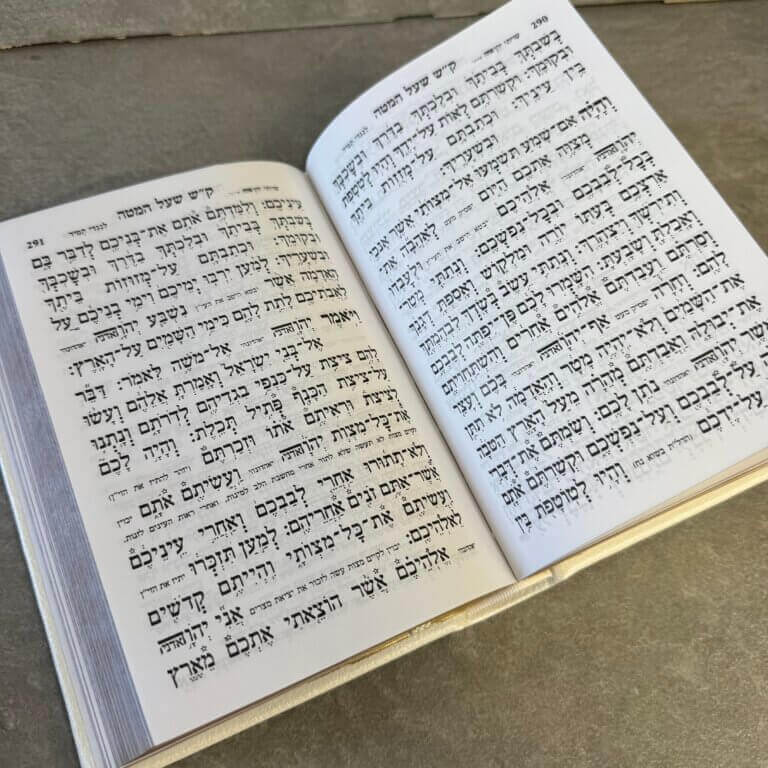 290
ק״ש שעל המטה לנגדי תמיד
בְּשִׁבְתְּךָ בְּבֵיתֶךָ וּבְלֶכְתְּךָ בַדֶּרֶךְ וּבְשָׁכְבְּךָ
וּבְקוּמֶךָ: וּקְשַׁרְתָּם לְאוֹת עַל־יָדֶךָ וְהָיוּ לְטֹטָפֹת
בֵּין עֵינֶיךָ: וּכְתַבְתָּם עַל־מְזֻזוֹת בֵּיתֶךָ
וּבִשְׁעָרֶיךָ:
וְהָיָה אִם־שָׁמֹעַ תִּשְׁמְעוּ אֶל־מִצְוֹתַי אֲשֶׁר אָנֹכִי
מְצַוֶּה אֶתְכֶם הַיּוֹם לְאַהֲבָה אֶת־
יְהוָה אֱלֹהֵיכֶם וּלְעָבְדוֹ
בְּכָל־לְבַבְכֶם וּבְכָל־נַפְשְׁכֶם: וְנָתַתִּי מְטַר
אַרְצְכֶם בְּעִתּוֹ יוֹרֶה וּמַלְקוֹשׁ וְאָסַפְתָּ דְגָנֶךָ
וְתִירֹשְׁךָ וְיִצְהָרֶךָ: וְנָתַתִּי עֵשֶׂב בְּשָׂדְךָ לִבְהֶמְתֶּךָ
וְאָכַלְתָּ וְשָׂבָעְתָּ: הִשָּׁמְרוּ לָכֶם פֶּן־יִפְתֶּה לְבַבְכֶם
וְסַרְתֶּם וַעֲבַדְתֶּם אֱלֹהִים אֲחֵרִים וְהִשְׁתַּחֲוִיתֶם
לָהֶם: וְחָרָה אַף־יְהוָה בָּכֶם וְעָצַר
אֶת־הַשָּׁמַיִם וְלֹא־יִהְיֶה מָטָר וְהָאֲדָמָה לֹא תִתֵּן
אֶת־יְבוּלָהּ וַאֲבַדְתֶּם מְהֵרָה מֵעַל הָאָרֶץ הַטֹּבָה
אֲשֶׁר יְהוָה נֹתֵן לָכֶם: וְשַׂמְתֶּם אֶת־דְּבָרַי
אֵלֶּה עַל־לְבַבְכֶם וְעַל־נַפְשְׁכֶם וּקְשַׁרְתֶּם אֹתָם
לְאוֹת עַל־יֶדְכֶם וְהָיוּ לְטוֹטָפֹת בֵּין
291
ק״ש שעל המטה לנגדי תמיד
עֵינֵיכֶם: וְלִמַּדְתֶּם אֹתָם אֶת־בְּנֵיכֶם לְדַבֵּר בָּם
בְּשִׁבְתְּךָ בְּבֵיתֶךָ וּבְלֶכְתְּךָ בַדֶּרֶךְ וּבְשָׁכְבְּךָ
וּבְקוּמֶךָ: וּכְתַבְתָּם עַל־מְזוּזוֹת בֵּיתֶךָ
וּבִשְׁעָרֶיךָ: לְמַעַן יִרְבּוּ יְמֵיכֶם וִימֵי בְנֵיכֶם עַל
הָאֲדָמָה אֲשֶׁר נִשְׁבַּע יְהוָה
לַאֲבֹתֵיכֶם לָתֵת לָהֶם כִּימֵי הַשָּׁמַיִם עַל־הָאָרֶץ:
וַיֹּאמֶר יְהוָה אֶל־מֹשֶׁה לֵּאמֹר: דַּבֵּר
אֶל־בְּנֵי יִשְׂרָאֵל וְאָמַרְתָּ אֲלֵהֶם וְעָשׂוּ
לָהֶם צִיצִת עַל־כַּנְפֵי בִגְדֵיהֶם לְדֹרֹתָם וְנָתְנוּ
עַל־צִיצִת הַכָּנָף פְּתִיל תְּכֵלֶת: וְהָיָה לָכֶם
לְצִיצִת וּרְאִיתֶם אֹתוֹ וּזְכַרְתֶּם
אֶת־כָּל־מִצְוֹת יְהוָה וַעֲשִׂיתֶם אֹתָם
וְלֹא־תָתוּרוּ אַחֲרֵי לְבַבְכֶם וְאַחֲרֵי עֵינֵיכֶם
אֲשֶׁר־אַתֶּם זֹנִים אַחֲרֵיהֶם: לְמַעַן תִּזְכְּרוּ
וַעֲשִׂיתֶם אֶת־כָּל־מִצְוֹתָי וִהְיִיתֶם קְדֹשִׁים
לֵאלֹהֵיכֶם: יכוין לקיים מצות עשה לזכור את יציאת מצרים אֲנִי יְהוָה
אֱלֹהֵיכֶם אֲשֶׁר הוֹצֵאתִי אֶתְכֶם מֵאֶרֶץ